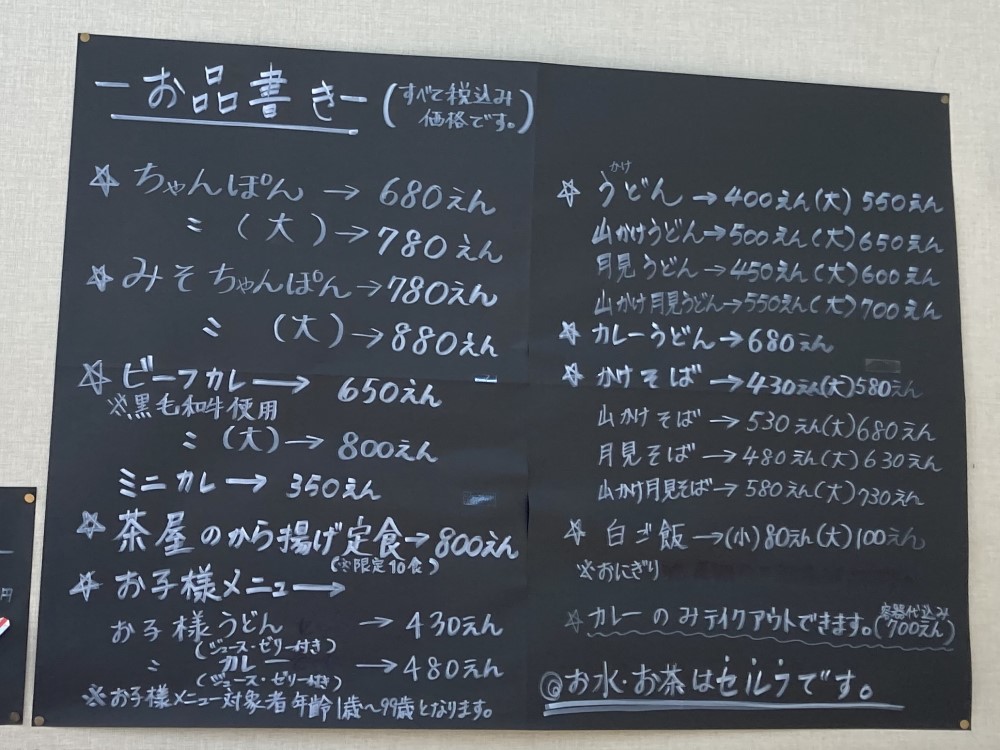 ーお品書きー (すべて税込み
価格です。)
☆ ちゃんぽん → 680えん
〃 (大) → 780えん
☆ みそちゃんぽん → 780えん
〃 (大) → 880えん
☆ ビーフカレー → 650えん
※黒毛和牛使用
〃 (大) → 800えん
ミニカレー → 350えん
☆ 茶屋のから揚げ定食 → 800えん
(※限定10食)
☆ お子様メニュー →
お子様うどん → 430えん
(ジュース・ゼリー付き)
〃 カレー → 480えん
(ジュース・ゼリー付き)
※お子様メニュー対象者年齢1歳〜99歳となります。
かけ
☆ うどん → 400えん(大) 550えん
山かけうどん → 500えん(大) 650えん
月見うどん → 450えん(大) 600えん
山かけ月見うどん → 550えん(大) 700えん
☆ カレーうどん → 680えん
☆ かけそば → 430えん(大) 580えん
山かけそば → 530えん(大) 680えん
月見そば → 480えん(大) 630えん
山かけ月見そば → 580えん(大) 730えん
☆ 白ご飯 → (小) 80えん(大) 100えん
※おにぎり
☆ カレーのみテイクアウトできます。(容器代込み
700えん)
◎お水・お茶はセルフです。
円